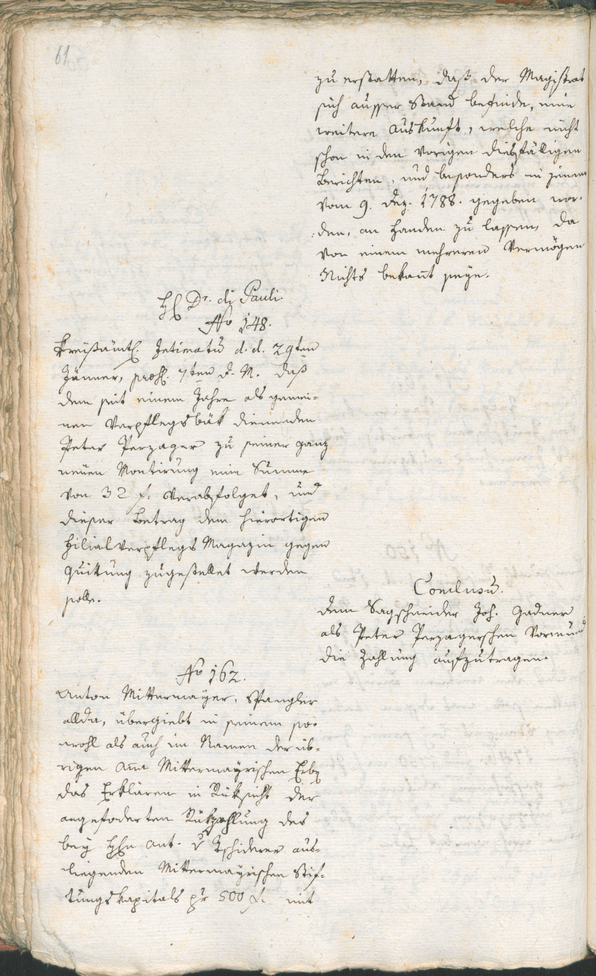 61
zu erstatten, daß der Magistrat
sich ausser Stand befinde, eine
weitere Auskunft, welche nicht
schon in den vorigen dießfäligen
Berichten, und besonders in jenem
vom 9. Dez. 1788. gegeben wor-
den, an Handen zu lassen, da
von einem mehreren Vermögen
Nichts bekañt seye.
H Dr. di Pauli
No 148.
Kreisämtl. Intimatũ d. d. 29ten
Jänner, pros. 7ten d. M. daß
dem seit einem Jahre als gemei-
nen Verpflegsbäk dienenden
Peter Perzager zu seiner ganz
neuen Montirung eine Summe
von 32 f. verabfolget, und
dieser Betrag dem hierortigen
Filialverpflegs Magazin gegen
Quitung zugestellet werden
solle.
Conclusũ.
Dem Sagschneider Joh. Gadner
als Peter Perzagerschen Vormund
die Zahlung aufzutragen.
No 162.
Anton Mittermayer, Spangler
allda, übergiebt in seinem so-
wohl als auch im Namen der üb-
rigen Mittermayrischen Erbẽ
das Erklären in Rüksicht der
angefoderten Rükzahlung des
bey Hħn Ant. v Tschiderer aus-
liegenden Mittermayrischen Stif-
tungskapitals pr 500 f. mit